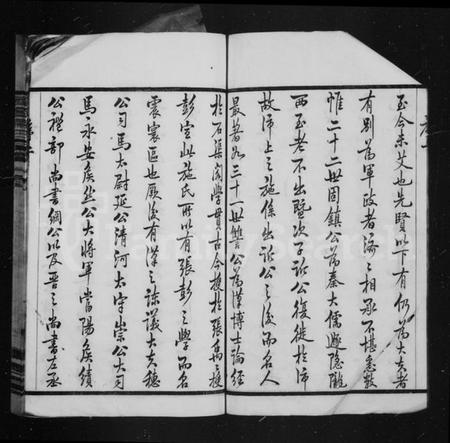 至今未艾也先賢以下有仍為大夫者
有別為軍政者於之相承不堪悉數
惟二十二世固鎮公為秦大儒避隱隴
西至老不出暨次子訟公復徙於沛
故沛上之施係出訟公之後而名人
最著為三十一世讐公為漢博士論經
於石渠閣學貫古今授於張禹之授
彭宣此施氏所以有張彭之學而名
震寰區也厥後有漢之諫議大夫穗
公司馬太尉延公清河太守崇公大司
馬永安侯然公大將軍當陽侯績
公禮部尚書綱公以及晉之尚書左丞